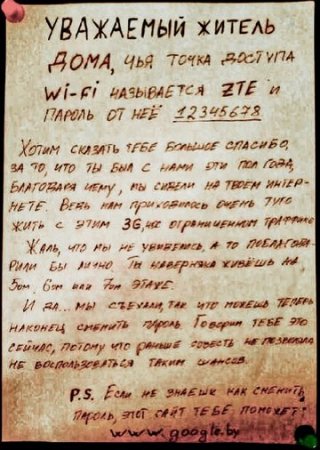 УВАЖАЕМЫЙ ЖИТЕЛЬ
ДОМА, ЧЬЯ ТОЧКА ДОСТУПА
Wi-Fi НАЗЫВАЕТСЯ ZTE И
ПАРОЛЬ ОТ НЕЁ 12345678
Хотим сказать тебе большое спасибо,
за то, что ты был с нами эти пол года,
благодаря чему, мы сидели на твоем интер-
нете. Ведь нам приходилось очень туго
жить с этим 3G, ограниченном траффике
Жаль, что мы не увиделись, а то поблагода-
рили бы лично. Ты наверняка живёшь на
5ом, 6ом или 7ом этаже.
И да... мы съехали, так что можешь теперь
наконец сменить пароль. Говорим тебе это
сейчас, потому что раньше совесть не позволила
не воспользоваться таким шансом.
P.S. Если не знаешь как сменить
пароль, этот сайт тебе поможет:
www.google.by